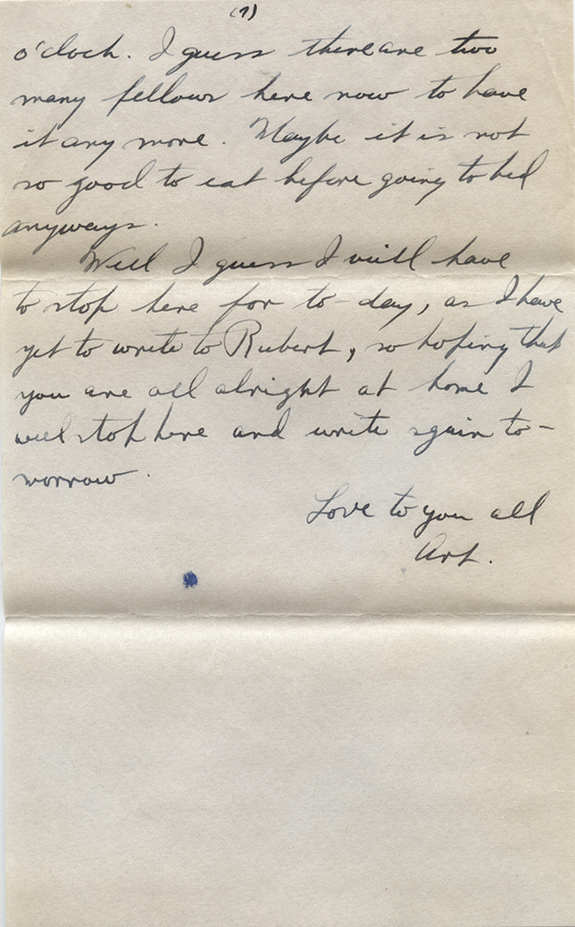 (7)
o'clock. I guess there are two
many fellows here now to have
it any more. Maybe it is not
so good to eat before going to bed
anyways.
Well I guess I will have
to stop here for to-day, as I have
yet to write to Rubert, so hoping that
you are all alright at home I
will stop here and write again to-
morrow.
Love to you all
Art.